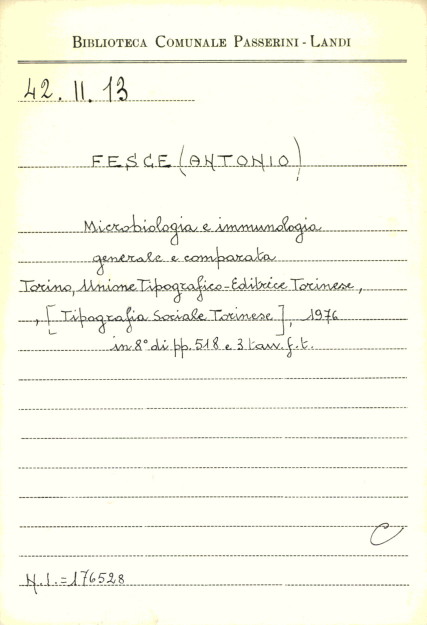 BIBLIOTECA COMUNALE PASSERINI - LANDI
42. II. 13
FESCE (ANTONIO)
Microbiologia e immunologia
generale e comparata
Torino, Unione Tipografico-Editrice Torinese,
, [Tipografia Sociale Torinese], 1976
in 8° di pp. 518 e 3 tav. f. t.
C
N. I. = 176528